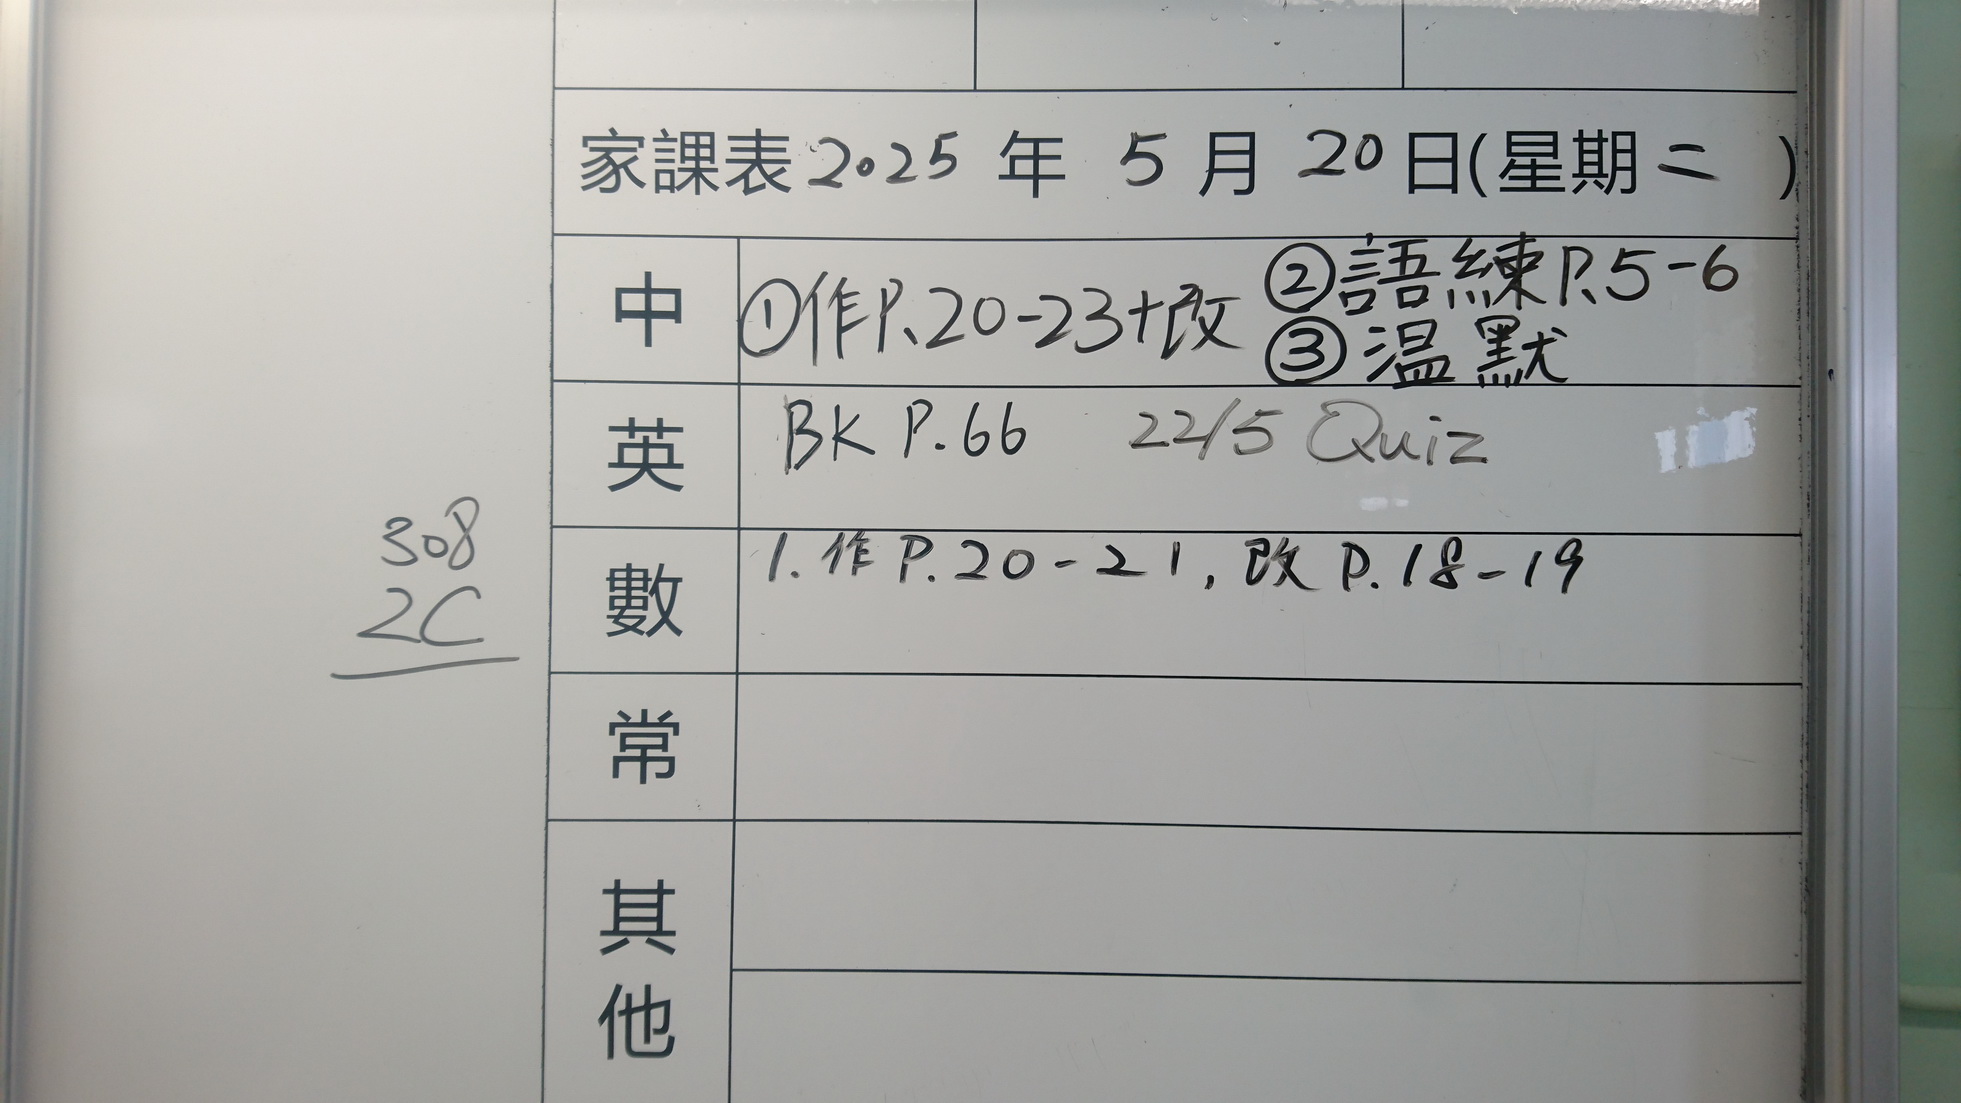 家課表 2025 年 5 月 20 日(星期二)
中 ①作P.20-23+改 ②語練P.5-6
③溫默
英 BK P.66 22/5 Quiz
數 1. 作P.20-21, 改P.18-19
308
2C
常
其他